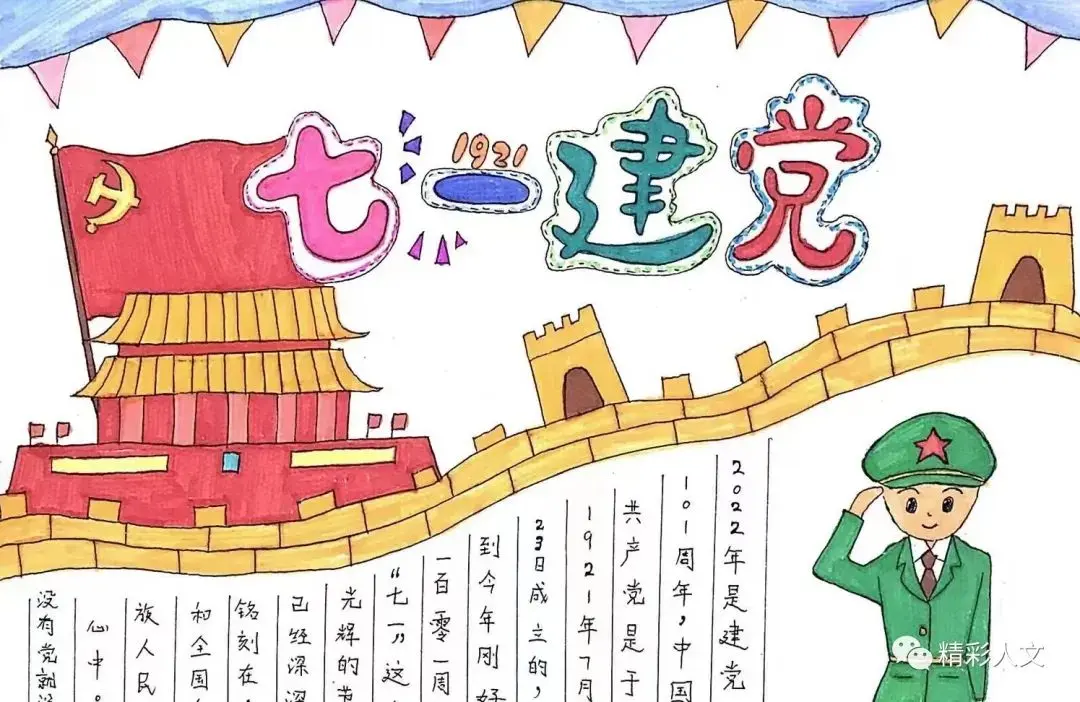 七一建党
1921
2022年是建党
101周年，中国
共产党是于
1921年7月
23日成立的，
到今年刚好
一百零一周
“七一”这
光辉的节
已经深深
铭刻在
和全国
放人民
心中。
没有党就没
精彩人文